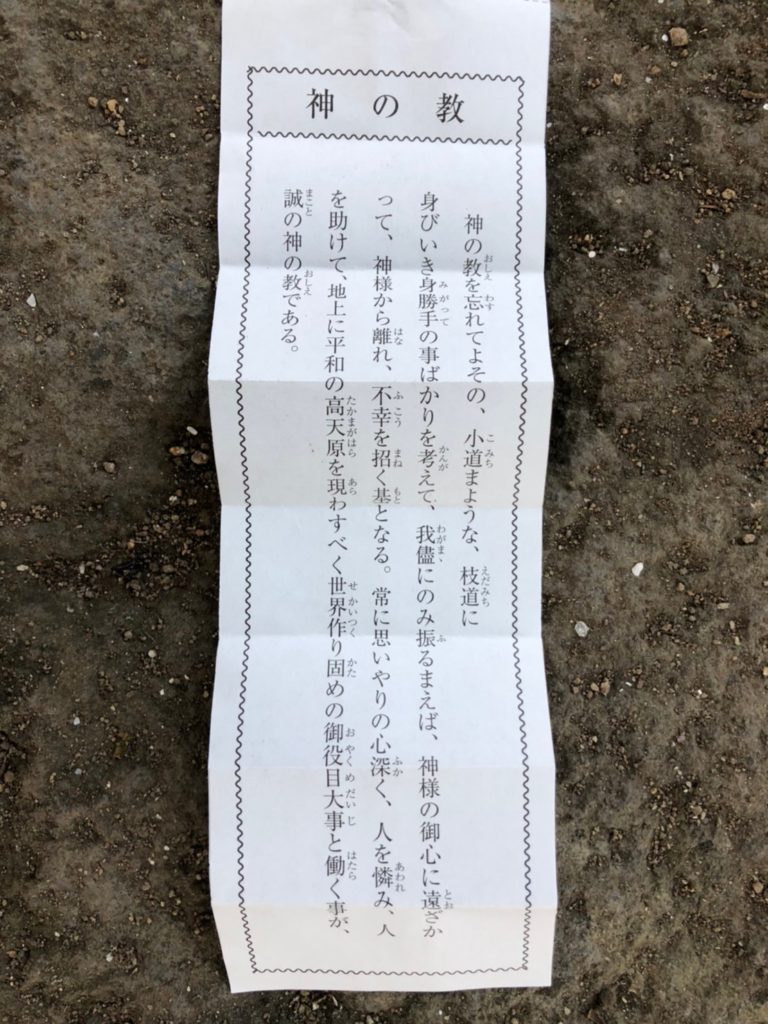 神の教
神の教を忘れてよその、小道まような、枝道に
身びいき身勝手の事ばかりを考えて、我儘にのみ振るまえば、神様の御心に遠ざか
って、神様から離れ、不幸を招く基となる。常に思いやりの心深く、人を憐み、人
を助けて、地上に平和の高天原を現わすべく世界作り固めの御役目大事と働く事が、
誠の神の教である。